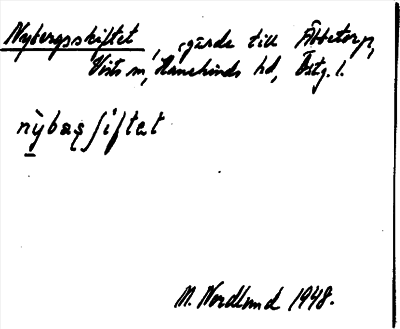 Nybergsskiftet, gärde till Åbbetorp,
Vists sn, Hanekinds hd, Östg. l.
nỳbæʂʃiftet
N. Nordlund 1948.